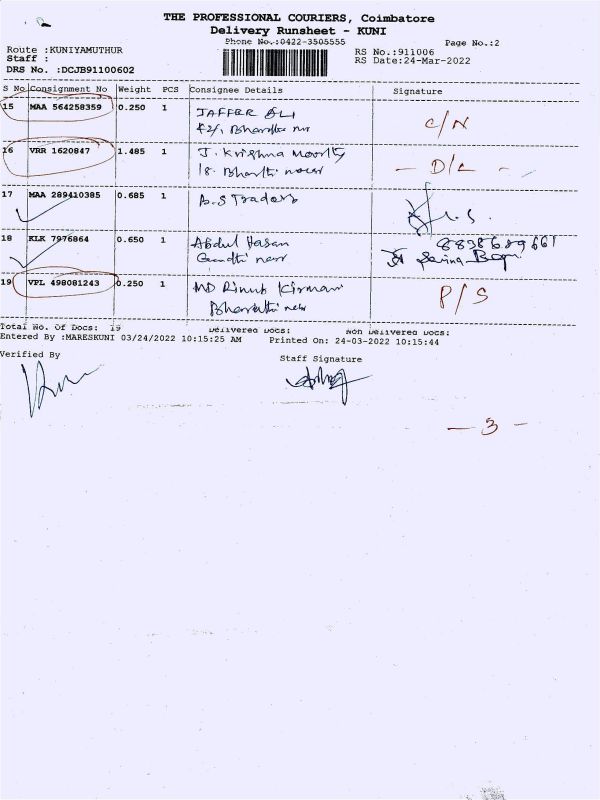 THE PROFESSIONAL COURIERS, Coimbatore
Delivery Runsheet - KUNI
Phone No.:0422-3505555
Page No.:2
Route :KUNIYAMUTHUR
RS No.:911006
Staff :
RS Date:24-Mar-2022
DRS No. :DCJB91100602
S No Consignment No Weight PCS Consignee Details Signature
15 MAA 564258359 0.250 1 JAFFER ALI C/N
Bharathi
16 VRR 1620847 1.485 1 J. Krishna Moorthy - D/L -
18. Bharthi
17 MAA 289410385 0.685 1 A.S Traders
18 KLK 7976864 0.650 1 Abdul Hasan 8838689661
Gandhi
19 VPL 498081243 0.250 1 MD P/S
Bharathi
Total No. Of Docs: 19 Delivered Docs: Non Delivered Docs:
Entered By :MARESKUNI 03/24/2022 10:15:25 AM Printed On: 24-03-2022 10:15:44
Verified By Staff Signature
- 3 -